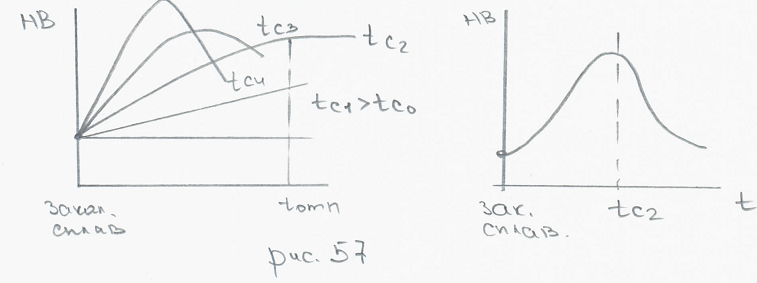 HB
tc3
tc2
tc4
tc1>tc0
закал.
сплав
tотп
рис. 57
HB
зак.
сплав.
tc2
t